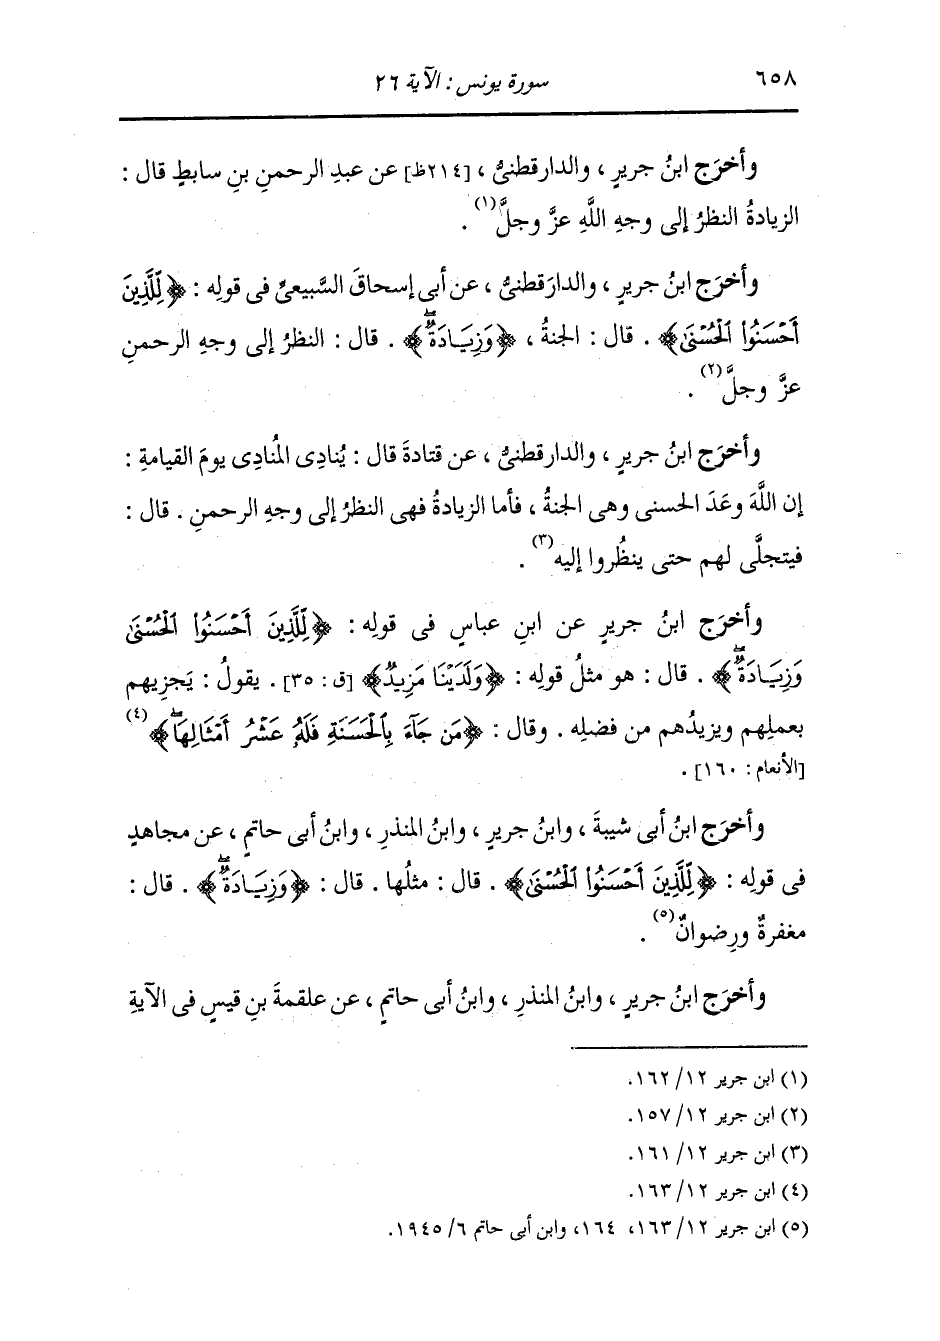 ٦٥٨
سورة يونس : الآية ٢٦
وأخرَج ابنُ جريرٍ ، والدارقطنىُّ ، [٢١٤ظ] عن عبدِ الرحمنِ بنِ سابطٍ قال :
الزيادةُ النظرُ إلى وجهِ اللَّهِ عزَّ وجلَّ(١) .
وأخرَج ابنُ جريرٍ ، والدارَقطنىُّ ، عن أبى إسحاقَ السَّبيعىِّ فى قولِه : ﴿لِّلَّذِينَ
أَحْسَنُوا۟ ٱلْحُسْنَىٰ﴾ . قال : الجنةُ ، ﴿وَزِيَادَةٌۖ﴾ . قال : النظرُ إلى وجهِ الرحمنِ
عزَّ وجلَّ(٢) .
وأخرَج ابنُ جريرٍ ، والدارقطنىُّ ، عن قتادةَ قال : يُنادِى المُنادِى يومَ القيامةِ :
إن اللَّهَ وعَدَ الحسنى وهى الجنةُ ، فأما الزيادةُ فهى النظرُ إلى وجهِ الرحمنِ . قال :
فيتجلَّى لهم حتى ينظُروا إليه(٣) .
وأخرَج ابنُ جريرٍ عن ابنِ عباسٍ فى قولِه : ﴿لِّلَّذِينَ أَحْسَنُوا۟ ٱلْحُسْنَىٰ
وَزِيَادَةٌۖ﴾ . قال : هو مثلُ قولِه : ﴿وَلَدَيْنَا مَزِيدٌ﴾ [ق : ٣٥] . يقولُ : يَجزِيهم
بعملِهم ويزيدُهم من فضلِه . وقال : ﴿مَن جَآءَ بِٱلْحَسَنَةِ فَلَهُۥ عَشْرُ أَمْثَالِهَاۖ﴾(٤)
[الأنعام : ١٦٠] .
وأخرَج ابنُ أبى شيبةَ ، وابنُ جريرٍ ، وابنُ المنذرِ ، وابنُ أبى حاتمٍ ، عن مجاهدٍ
فى قولِه : ﴿لِّلَّذِينَ أَحْسَنُوا۟ ٱلْحُسْنَىٰ﴾ . قال : مثلُها . قال : ﴿وَزِيَادَةٌۖ﴾ . قال :
مغفرةٌ ورِضوانٌ(٥) .
وأخرَج ابنُ جريرٍ ، وابنُ المنذرِ ، وابنُ أبى حاتمٍ ، عن علقمةَ بنِ قيسٍ فى الآيةِ
(١) ابن جرير ١٢/ ١٦٢.
(٢) ابن جرير ١٢/ ١٥٧.
(٣) ابن جرير ١٢/ ١٦١.
(٤) ابن جرير ١٢/ ١٦٣.
(٥) ابن جرير ١٢/ ١٦٣، ١٦٤، وابن أبى حاتم ٦/ ١٩٤٥.